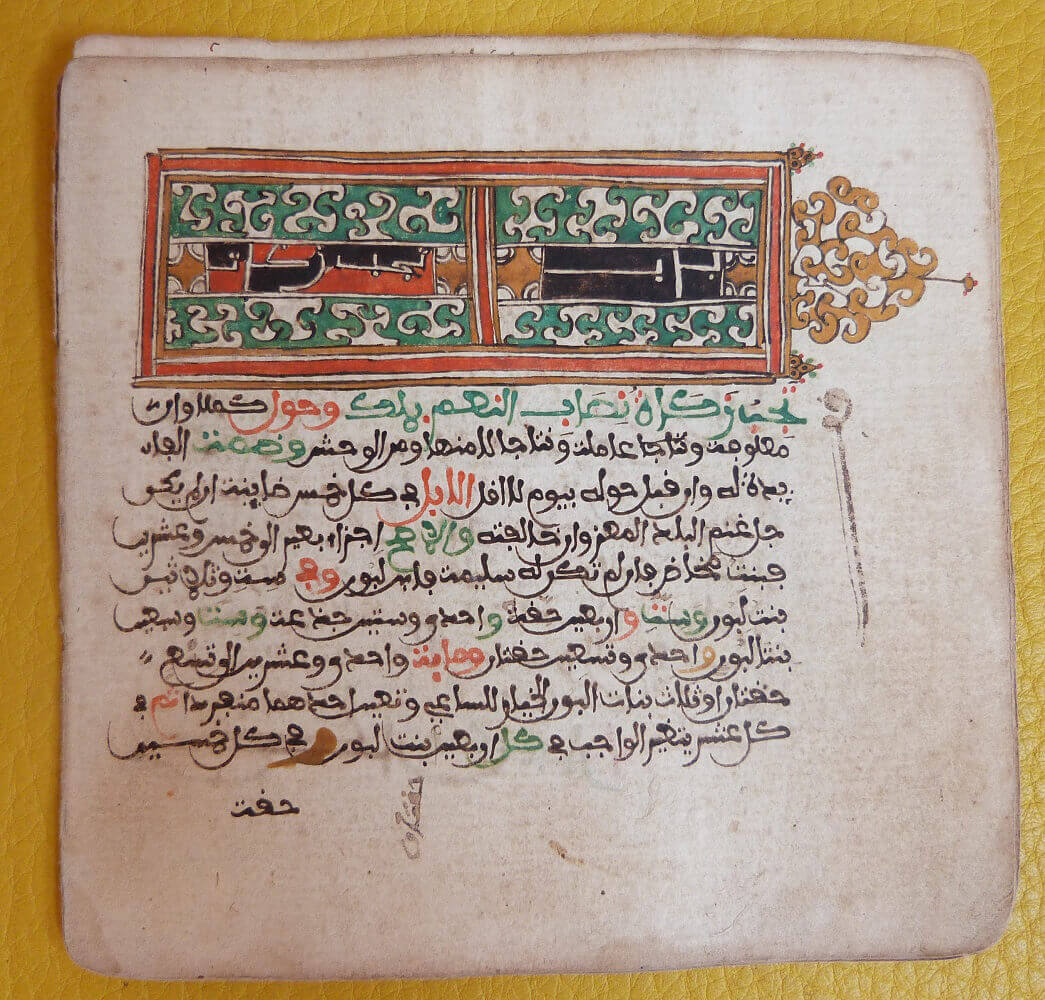 باب تجب زكات
تجب زكاة نصاب النعم بملك وحول كملا وان
معلوفة ونتاجا عاملة ونتاجا لا منها ومن الوحش وضمت الفاء
يدة له وان قبل حوله بيوم لا لاقل الابل في كل خمس ضاينة ان لم يكن
جل غنم البلد المعز وان خالفته والاصح اجزاء بعير الى خمس وعشرين
فبنت مخاض فان لم تكن له سليمة فابن لبون وفي ست وثلاثين
بنت لبون وست واربعين حقة واحدى وستين جذعة وست وسبعين
بنتا لبون واحدى وتسعين حقتان ومائة واحدى وعشرين الى تسع
حقتان او ثلاث بنات لبون الخيار للساعي وتعين احدهما منفردا ثم في
كل عشر يتغير الواجب في كل اربعين بنت لبون وفي كل خمسين
حقة
حقتان